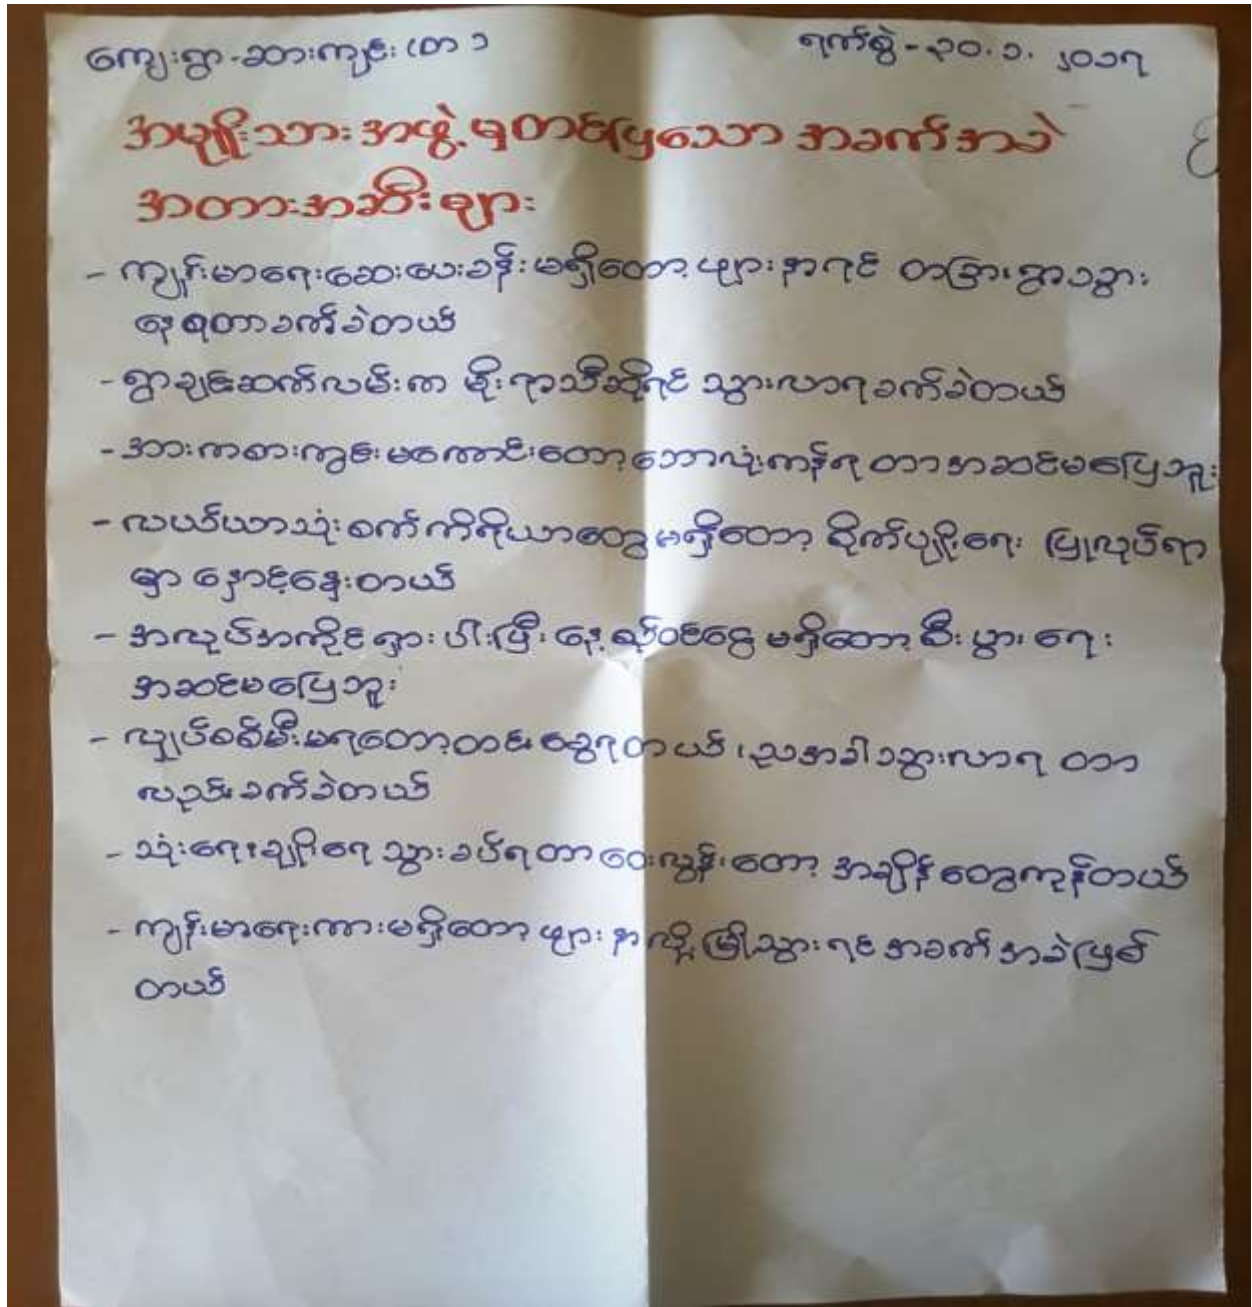 ကျေးရွာ-ဆားကျင်း(တ)
ရက်စွဲ-၃၀.၁.၂၀၁၇
အမျိုးသားအဖွဲ့မှတင်ပြသော အခက်အခဲ
အတားအဆီးများ
- ကျန်းမာရေးဆေးပေးခန်းမရှိတော့ ဖျားနာရင် တခြားရွာသွား
နေရတာခက်ခဲတယ်
- ရွာချင်းဆက်လမ်းက မိုးရာသီဆိုရင် သွားလာရခက်ခဲတယ်
- အားကစားကွင်းမကောင်းတော့ဘောလုံးကန်ရတာအဆင်မပြေဘူး
- လယ်ယာသုံးစက်ကိရိယာတွေမရှိတော့ စိုက်ပျိုးရေး ပြုလုပ်ရာ
မှာ နှောင့်နှေးတယ်
- အလုပ်အကိုင်ရှားပါးပြီး နေ့စဉ်ဝင်ငွေမရှိတော့ စီးပွားရေး
အဆင်မပြေဘူး
- လျှပ်စစ်မီးမရတော့ ညအခါသွားလာရတာ
လည်းခက်ခဲတယ်
- သုံးရေ၊ချိုးရေ သွားခပ်ရတာဝေးလွန်းတော့ အချိန်တွေကုန်တယ်
- ကျန်းမာရေးကားမရှိတော့ ဖျားနာလို့မြို့သွားရင်အခက်အခဲဖြစ်
တယ်